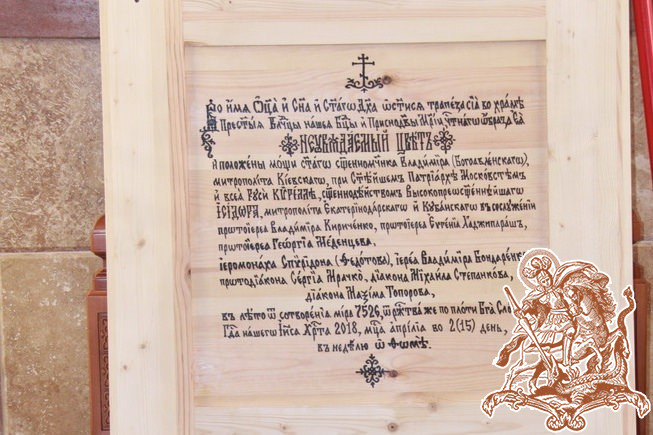 Во имѧ Ѻц҃а и Сн҃а и Ст҃агѡ Дх҃а ѡст҃исѧ трапеза сіѧ во храмѣ
Прест҃ыѧ Влчцы нашеѧ Бц҃ы и Приснодв҃ы Мр҃іи чⷭ҇тнагѡ ѡбраза Еѧ
НЕУВѦДАЕМЫЙ ЦВѢТЪ
и положены мощи ст҃агѡ сщ҃енномчнка Владиміра (Богоѧвленскагѡ),
митрополіта Кіевскагѡ, при ст҃ѣйшемъ Патріархѣ Московстѣмъ
и всеѧ Руси КѴРІЛЛѢ, сщ҃еннодѣйствомъ Высокопреѡсщ҃еннѣйшагѡ
ІСІДѠРА, митрополіта Екатерінодарскагѡ и Кубанскагѡ въ сослуженіи
пр̾тоіереа Владиміра Кириченко, пр̾тоіереа Евгеніа Хаджипарашъ,
пр̾тоіереа Геѡргіа Меденцева,
іеромонаха Спѷрідона (Ѳедотова), іереа Владиміра Бондаренко
пр̾тодіакона Сергіа Мрачко, діакона Міхаила Степанкова,
діакона Маѯіма Топорова,
въ лѣто ѿ сотворенія міра 7526, ѿ ржⷭ҇тва же по плоти Бг҃а
Гдⷭ҇а нашегѡ Іи҃са Хрⷭ҇та 2018, мцⷭ҇а апріліа во 2(15) день,
въ недѣлю ѿ Ѳѡмѣ.